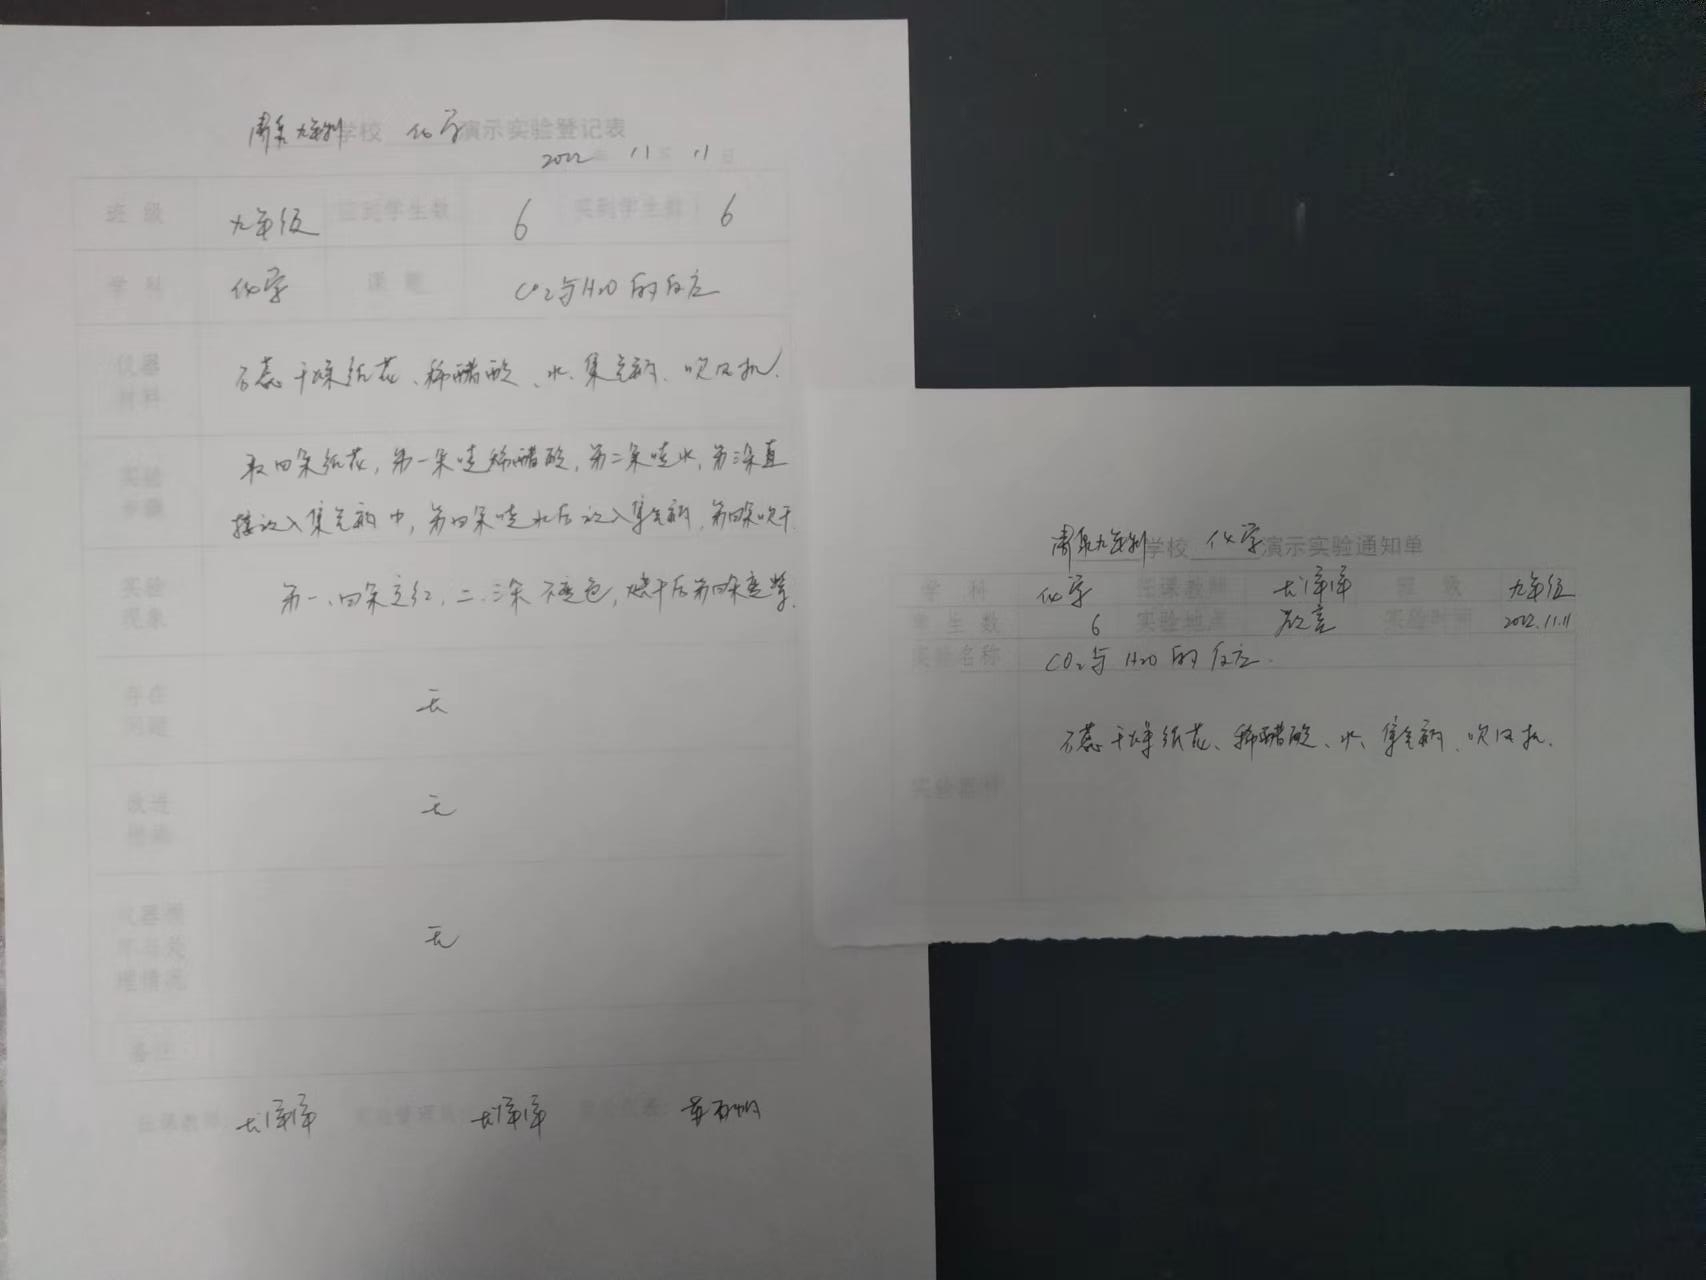 九年制学校 化学演示实验登记表
2022年 11月 11日
班级 九年级 应到学生数 6 实到学生数 6
学科 化学 课题 CO2与H2O的反应
仪器材料 石蕊干燥纸花、稀醋酸、水、集气瓶、吹风机.
实验步骤 取四朵纸花,第一朵喷稀醋酸,第二朵喷水,第三朵直
接放入集气瓶中,第四朵喷水后放入集气瓶,第四朵吹干.
实验现象 第一、四朵变红,二、三朵不变色,烘干后第四朵变紫.
存在问题 无
改进措施 无
仪器损坏与处理情况 无
备注
任课教师: 实验管理员:
九年制学校 化学演示实验通知单
学科 化学 任课教师 班级 九年级
学生数 6 实验地点 教室 实验时间 2022.11.11
实验名称 CO2与H2O的反应.
实验器材 石蕊干燥纸花、稀醋酸、水、集气瓶、吹风机.